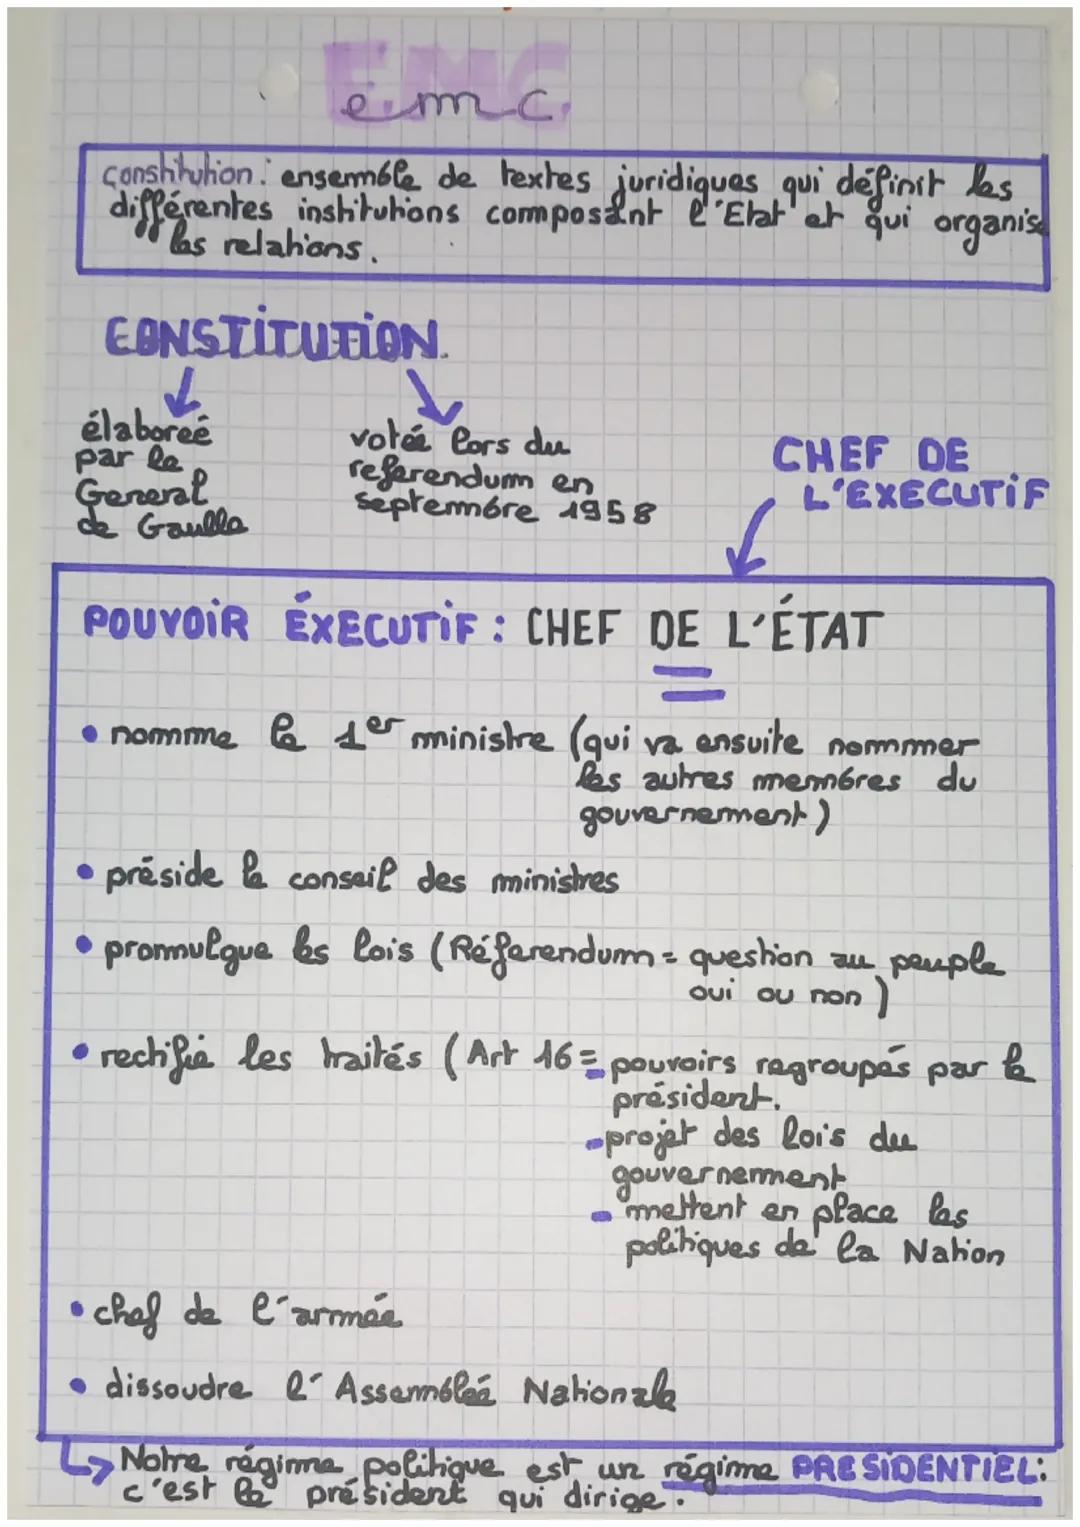 EMC
emc.
constitution : ensemble de textes juridiques qui définit les
différentes institutions composant l'Etat et qui organise
les relations.
CONSTITUTION.
élaboreé
par le
General
de Gaulle
votée lors du
referendum en
septembre 1958
CHEF DE
L'EXECUTIF
POUVOIR ÉXECUTIF : CHEF DE L'ÉTAT
• nomme le 1er ministre (qui va ensuite nommer
les autres membres du
gouvernement)
• préside le conseil des ministres
• promulgue les lois (Réferendum = question au peuple
oui ou non)
• rectifie les traités (Art 16 = pouvoirs regroupés par le
président.
- projet des lois du
gouvernement
- mettent en place les
politiques de la Nation
• chef de l'armée
• dissoudre l'Assembleé Nationale
↳ Notre régime politique est un régime PRESIDENTIEL :
c'est le président qui dirige.